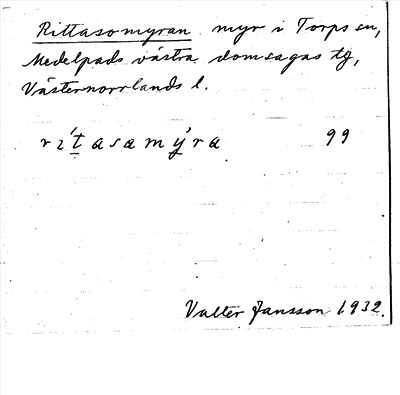 Rittasomyran myr i Torps sn,
Medelpads västra domsagas tg,
Västernorrlands l.
rı́tasamýra 99
Valter Jansson 1932.